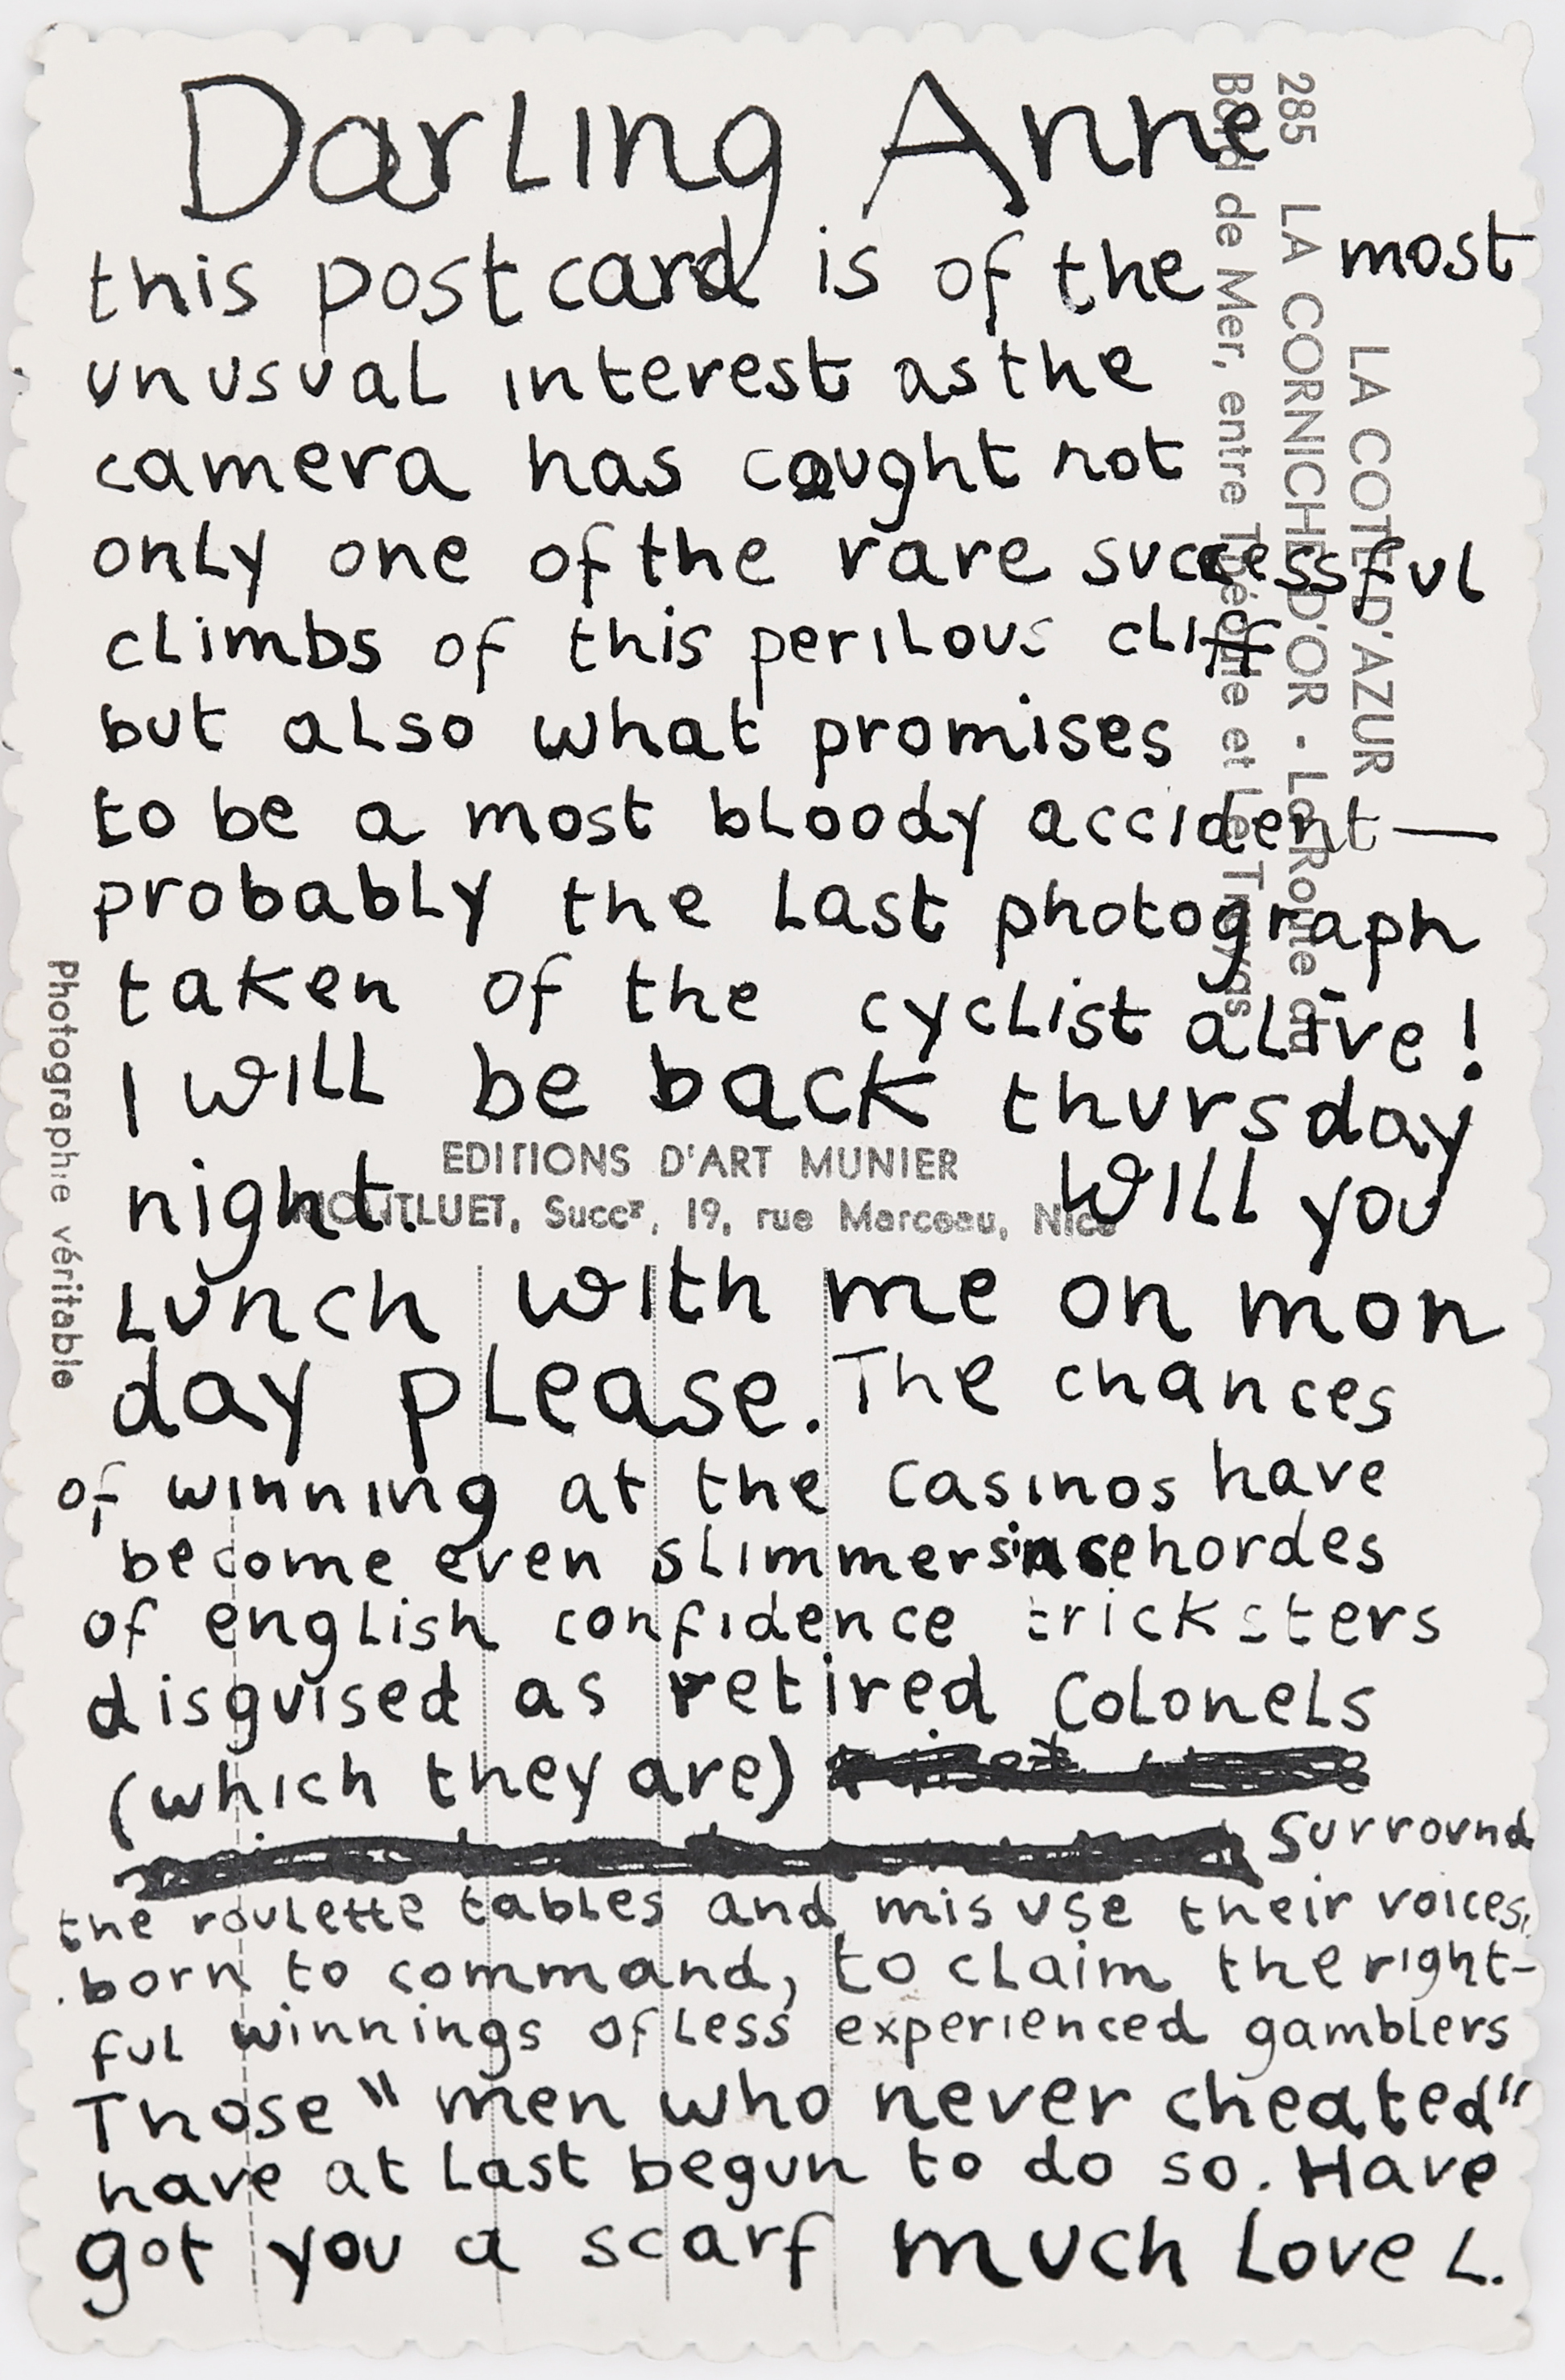 Darling Anne
this postcard is of the most
unusual interest as the
camera has caught not
only one of the rare successful
climbs of this perilous cliff
but also what promises
to be a most bloody accident —
probably the last photograph
taken of the cyclist alive!
I will be back thursday
night. Will you
Lunch with me on mon
day please. The chances
of winning at the casinos have
become even slimmer since hordes
of english confidence tricksters
disguised as retired Colonels
(which they are)
surround
the roulette tables and misuse their voices,
born to command, to claim the right-
ful winnings of less experienced gamblers
Those "men who never cheated"
have at last begun to do so. Have
got you a scarf much love L.
LA COTE D'AZUR
285 LA CORNICHE D'OR - La Route du
Bord de Mer, entre Théoule et Le Trayas
EDITIONS D'ART MUNIER
MOUTLUET, Succʳ, 19, rue Marceau, Nice
Photographie véritable